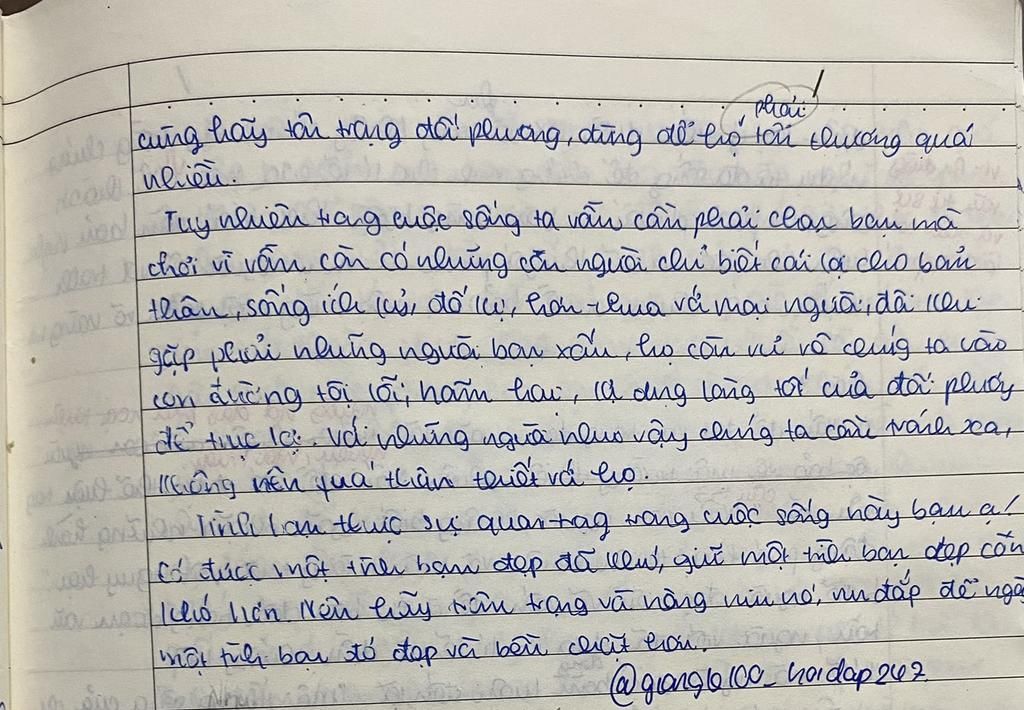 phải
cũng hãy tôn trọng đối phương, đừng để họ tổn thương quá
nhiều.
Tuy nhiên trong cuộc sống ta vẫn cần phải chọn bạn mà
chơi vì vẫn còn có những con người chỉ biết cái lợi cho bản
thân, sống ích kỷ, đố kỵ, hơn thua với mọi người, đôi khi
gặp phải những người bạn xấu, họ còn rủ rê chúng ta vào
con đường tội lỗi, hãm hại, lợi dụng lòng tốt của đối phương
để trục lợi. Với những người như vậy chúng ta cần tránh xa,
không nên quá thân thiết với họ.
Tình bạn thực sự quan trọng trong cuộc sống này bạn ạ!
Có được một tình bạn đẹp đã khó, giữ một tình bạn đẹp còn
khó hơn. Nên hãy trân trọng và nâng niu nó, vun đắp để ngày
một tình bạn đó đẹp và bền chặt hơn.
@giangle100_hoidap247